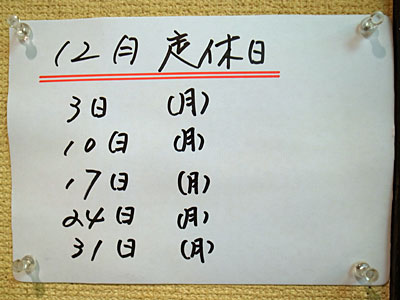 12月 定休日
3日 (月)
10日 (月)
17日 (月)
24日 (月)
31日 (月)